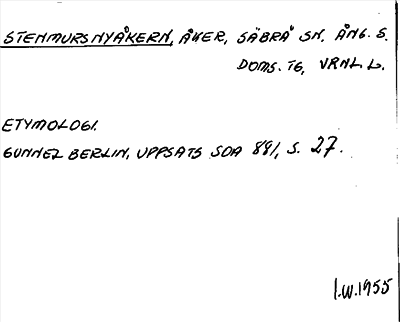 STENMURSNYÅKERN, ÅKER, SÄBRÅ SN, ÅNG. S.
DOMS. TG, VRNL. L.
ETYMOLOGI.
GUNNEL BERLIN, UPPSATS SOA 881, S. 27.
I.W.1955